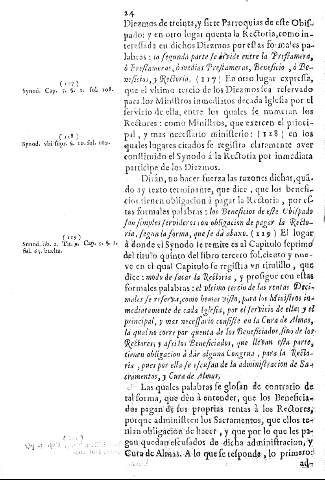 24
Diezmos de treinta, y siete Parroquias de este Obispado;
y en otro lugar quenta la Rectoria, como interessada
en dichos Diezmos por estas formales palabras:
la segunda parte se divide entre la Prestamera,
ò Prestameras, ò medias Prestameras, Beneficio, ò Beneficios,
y Rectoria. (117) En otro lugar expressa,
que el vltimo tercio de los Diezmos sea reservado
para los Ministros inmediatos de cada Iglesia por el
servicio de ella, entre los quales se numeran los
Rectores: como Ministros, que exercen el principal,
y mas necessario ministerio: (118) en los
quales lugares citados se registra claramente aver
constituido el Synodo à la Rectoria por inmediata
participe de los Diezmos.
(117)
Synod. Cap. 7. §. 2. fol. 108.
(118)
Synod. vbi supr. §. 10. fol. 109.
Diràn, no hacer fuerza las razones dichas,
texto terminante, que dice, que los beneficios
tienen obligacion à pagar la Rectoria, por estas
formales palabras: los Beneficios de este Obispado
son simples servideros con obligacion de pagar la Rectoria,
segun la forma, que se dà abaxo. (119) El lugar
à donde el Synodo se remite es al Capitulo septimo
del titulo quinto del libro tercero fol. ciento y nueve
en el qual Capitulo se registra vn titulillo, que
dice: modo de sacar la Rectoria, y prosigue con estas
formales palabras: el vltimo tercio de las rentas Decimales
se reserva, como hemos visto, para los Ministros inmediatamente
de cada Iglesia, por el servicio de ella; y el
principal, y mas necessario consiste en la Cura de Almas,
la qual no corre por quenta de los Beneficiados, sino de los
Rectores; y assi los Beneficiados, que llevan esta parte,
tienen obligacion à dàr alguna Congrua, para la Rectoria,
pues por ella se escusan de la administracion de Sacramentos,
y Cura de Almas.
(119)
Synod. lib. 2. Tit. 9. Cap. 5. §. 1.
fol. 65. buelta.
Las quales palabras se glosan de contrario de
tal forma, que dèn à entender, que los Beneficiados
pagan de sus proprias rentas à los Rectores,
porque administren los Sacramentos, que ellos tenian
obligacion de hacer, y que por lo que les pagan
quedan escusados de dicha administracion, y
Cura de Almas. A lo que se responde, lo primero:
ad-